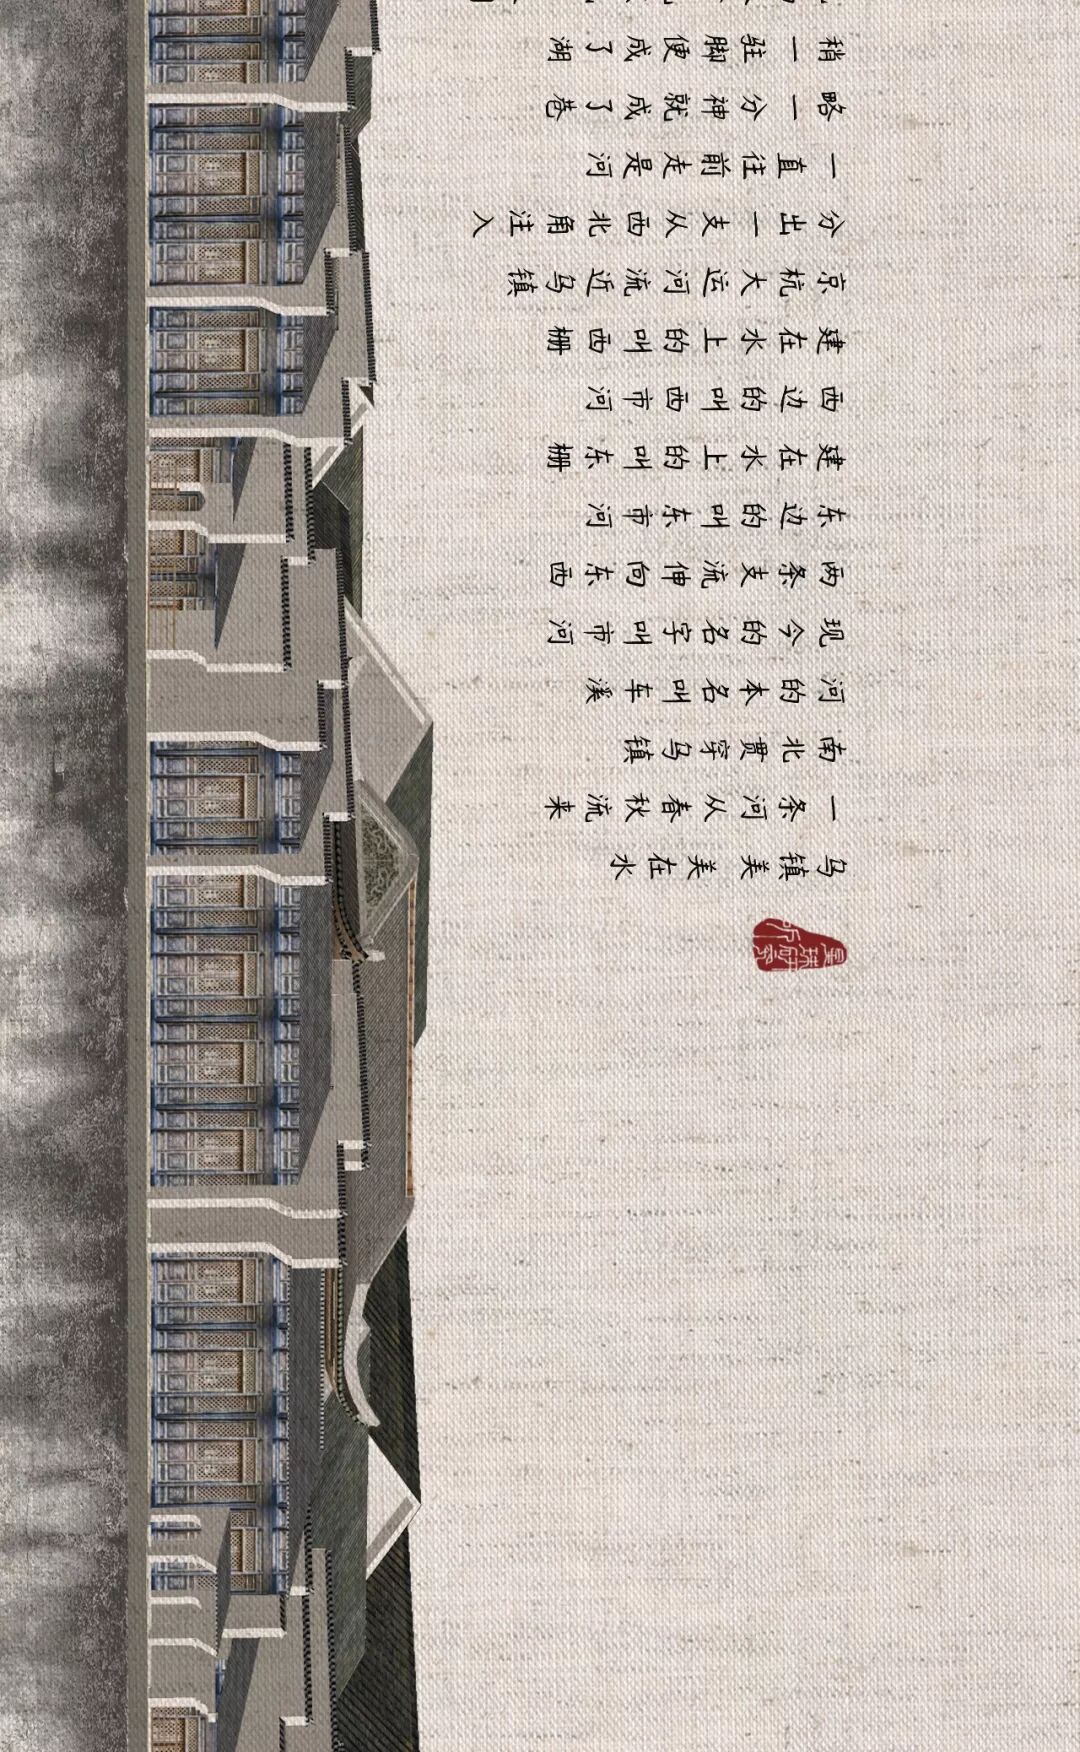 乌镇美 美在水
一条河从春秋流来
南北贯穿乌镇
河的本名叫车溪
现今的名字叫市河
两条支流伸向东西
东边的叫东市河
建在水上的叫东栅
西边的叫西市河
建在水上的叫西栅
京杭大运河流近乌镇
分出一支从西北角注入
一直往前走是河
略一分神就成了巷
稍一驻脚便成了湖